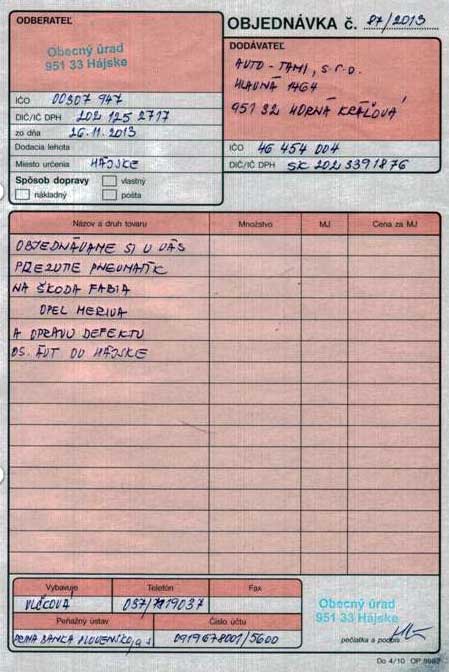 ODBERATEĽ
Obecný úrad
951 33 Hájske
IČO 00307 947
DIČ/IČ DPH 202 125 2717
zo dňa 26.11.2013
Dodacia lehota
Miesto určenia HÁJSKE
Spôsob dopravy
vlastný
nákladný
pošta
OBJEDNÁVKA č. 87/2013
DODÁVATEĽ
AUTO - TAMI, s r.o.
HLAVNÁ 1464
951 32 HORNÁ KRÁĽOVÁ
IČO 46 454 004
DIČ/IČ DPH SK 202 3391876
Názov a druh tovaru Množstvo MJ Cena za MJ
OBJEDNÁVAME SI U VÁS
PREZUTIE PNEUMATÍK
NA ŠKODA FABIA
OPEL MERIVA
A OPRAVU DEFEKTU
OS. ÁUT OÚ HÁJSKE
Vybavuje Telefón Fax
VLČKOVÁ 037/7819037
Peňažný ústav Číslo účtu
PRIMA BANKA SLOVENSKO, a.s. 0919678001/5600
Obecný úrad
951 33 Hájske
pečiatka a podpis
Do 4/10 OP